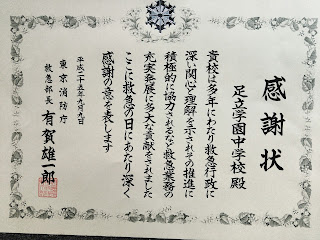 感謝状
足立学園中学校 殿
貴校は多年にわたり救急行政に
深い関心と理解を示されその推進に
積極的に協力されるなど救急業務の
充実発展に多大な貢献をされました
ここに救急の日にあたり深く
感謝の意を表します
平成二十五年九月九日
東京消防庁
救急部長 有賀雄一郎